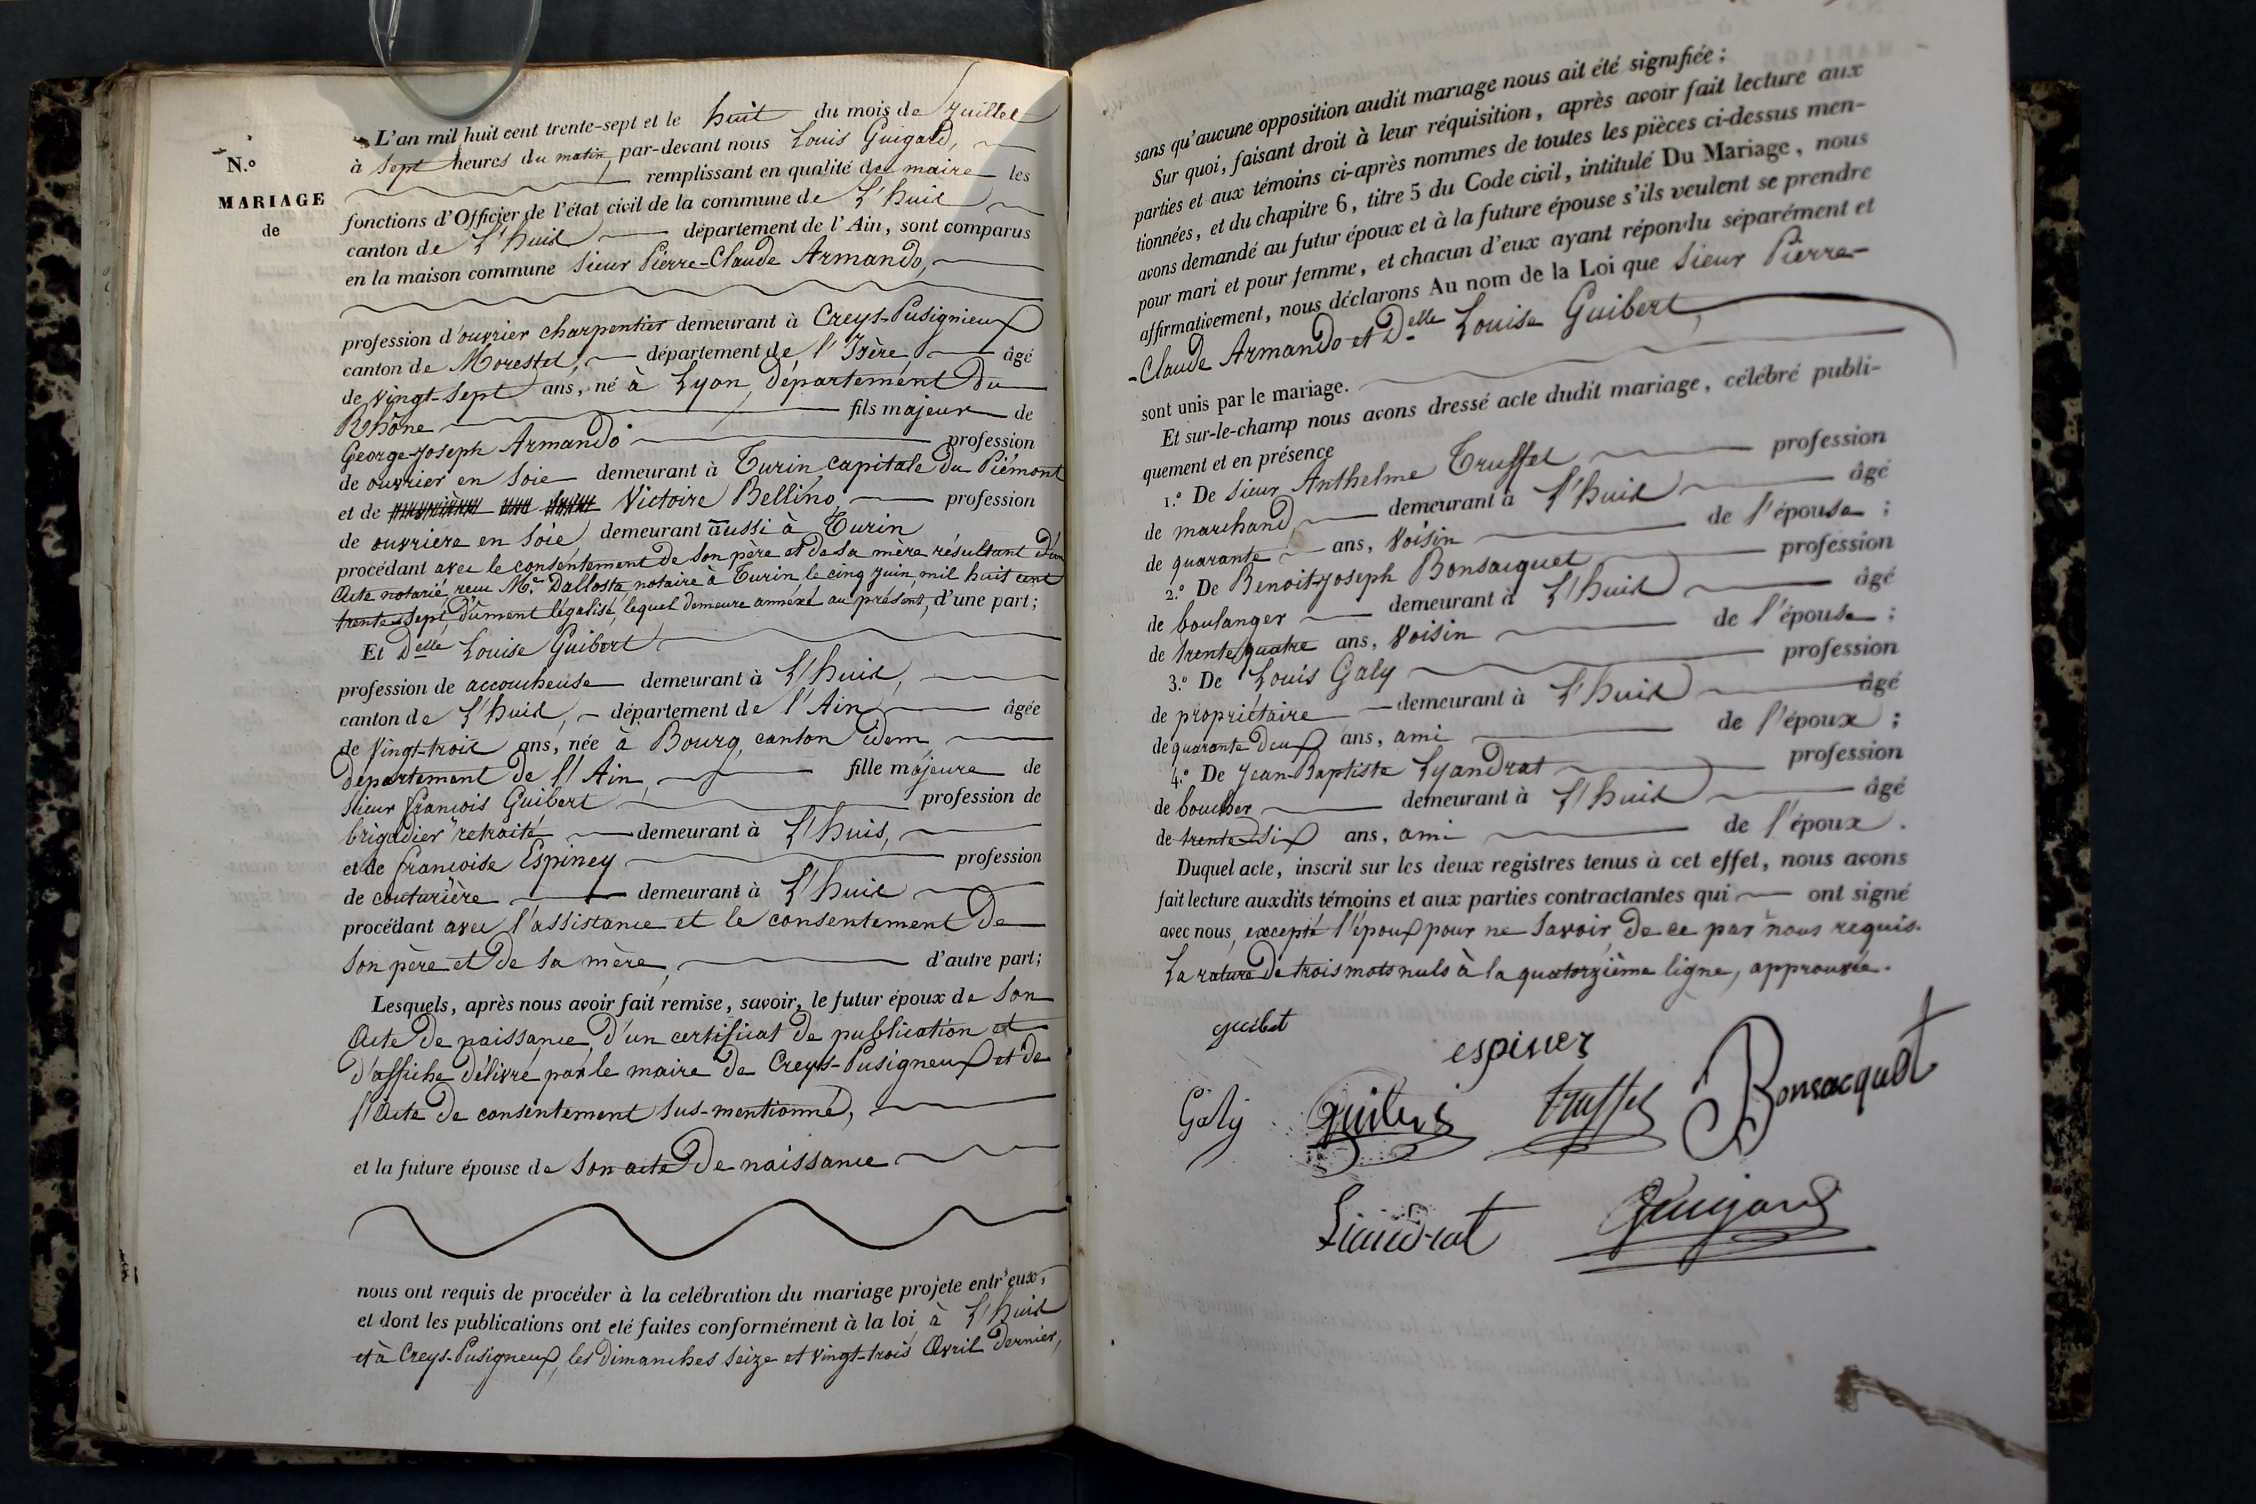 N.º
MARIAGE
de
L'an mil huit cent trente-sept et le huit du mois de Juillet
à sept heures du matin, par-devant nous Louis Guigard,
remplissant en qualité de maire les
fonctions d'Officier de l'état civil de la commune de L'huis
canton de L'huis département de l'Ain, sont comparus
en la maison commune sieur Pierre-Claude Armando,
profession d'ouvrier charpentier demeurant à Creys-Pusignieux
canton de Morestel, département de l'Isère âgé
de vingt-sept ans, né à Lyon, département du
Rhône fils majeur de
George-Joseph Armando profession
de ouvrier en soie demeurant à Turin capitale du Piémont
et de Victoire Bellino, profession
de ouvrière en soie, demeurant aussi à Turin
procédant avec le consentement de son père et de sa mère résultant d'un
Acte notarié, reçu Mr. Dallosta, notaire à Turin, le cinq juin, mil huit cent
trente-sept, dûment légalisé, lequel demeure annexé au présent, d'une part;
Et Delle Louise Guibert,
profession de accoucheuse demeurant à L'huis,
canton de L'huis, département de l'Ain âgée
de vingt-trois ans, née à Bourg, canton idem,
département de l'Ain, fille majeure de
sieur François Guibert profession de
brigadier retraité demeurant à L'huis,
et de françoise Espiney profession
de couturière demeurant à L'huis
procédant avec l'assistance et le consentement de
son père et de sa mère, d'autre part;
Lesquels, après nous avoir fait remise, savoir, le futur époux de son
Acte de naissance, d'un certificat de publication et
d'affiche délivré par le maire de Creys-Pusigneux et de
l'Acte de consentement sus-mentionné,
et la future épouse de son acte de naissance
nous ont requis de procéder à la celébration du mariage projeté entr'eux,
et dont les publications ont été faites conformément à la loi à L'huis
et à Creys-Pusigneux, les Dimanches seize et vingt-trois Avril dernier,
sans qu'aucune opposition audit mariage nous ait été signifiée;
Sur quoi, faisant droit à leur réquisition, après avoir fait lecture aux
parties et aux témoins ci-après nommes de toutes les pièces ci-dessus men-
tionnées, et du chapitre 6, titre 5 du Code civil, intitulé Du Mariage, nous
avons demandé au futur époux et à la future épouse s'ils veulent se prendre
pour mari et pour femme, et chacun d'eux ayant répondu séparément et
affirmativement, nous déclarons Au nom de la Loi que sieur Pierre-
-Claude Armando et Delle Louise Guibert,
sont unis par le mariage.
Et sur-le-champ nous avons dressé acte dudit mariage, célébré publi-
quement et en présence
1.º De sieur Anthelme Truffet profession
de marchand, demeurant à L'huis âgé
de quarante ans, voisin de l'épouse;
2.º De Benoit-Joseph Bonsacquet profession
de boulanger demeurant à L'huis âgé
de trente quatre ans, voisin de l'épouse;
3.º De Louis Galy profession
de propriétaire demeurant à L'huis âgé
de quarante deux ans, ami de l'époux;
4.º De Jean-Baptiste Lyandrat profession
de boucher demeurant à L'huis âgé
de trente-six ans, ami de l'époux.
Duquel acte, inscrit sur les deux registres tenus à cet effet, nous avons
fait lecture auxdits témoins et aux parties contractantes qui ont signé
avec nous, excepté l'époux pour ne savoir, de ce par nous requis.
La rature de trois mots nuls à la quatorzième ligne, approuvée.
guibet
espiney
Galy Guibert truffet Bonsacquet
Liandrat Guigard